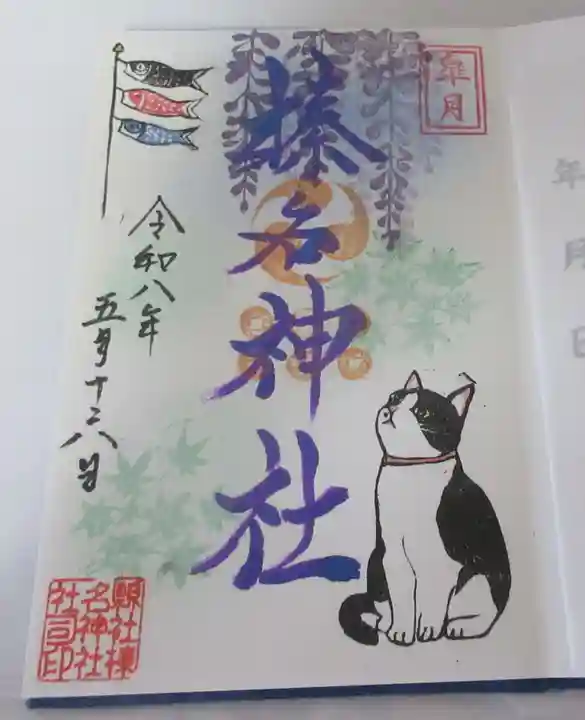 皐月
榛名神社
令和八年
五月十六日
縣社榛
名神社
社司印
年
月
日